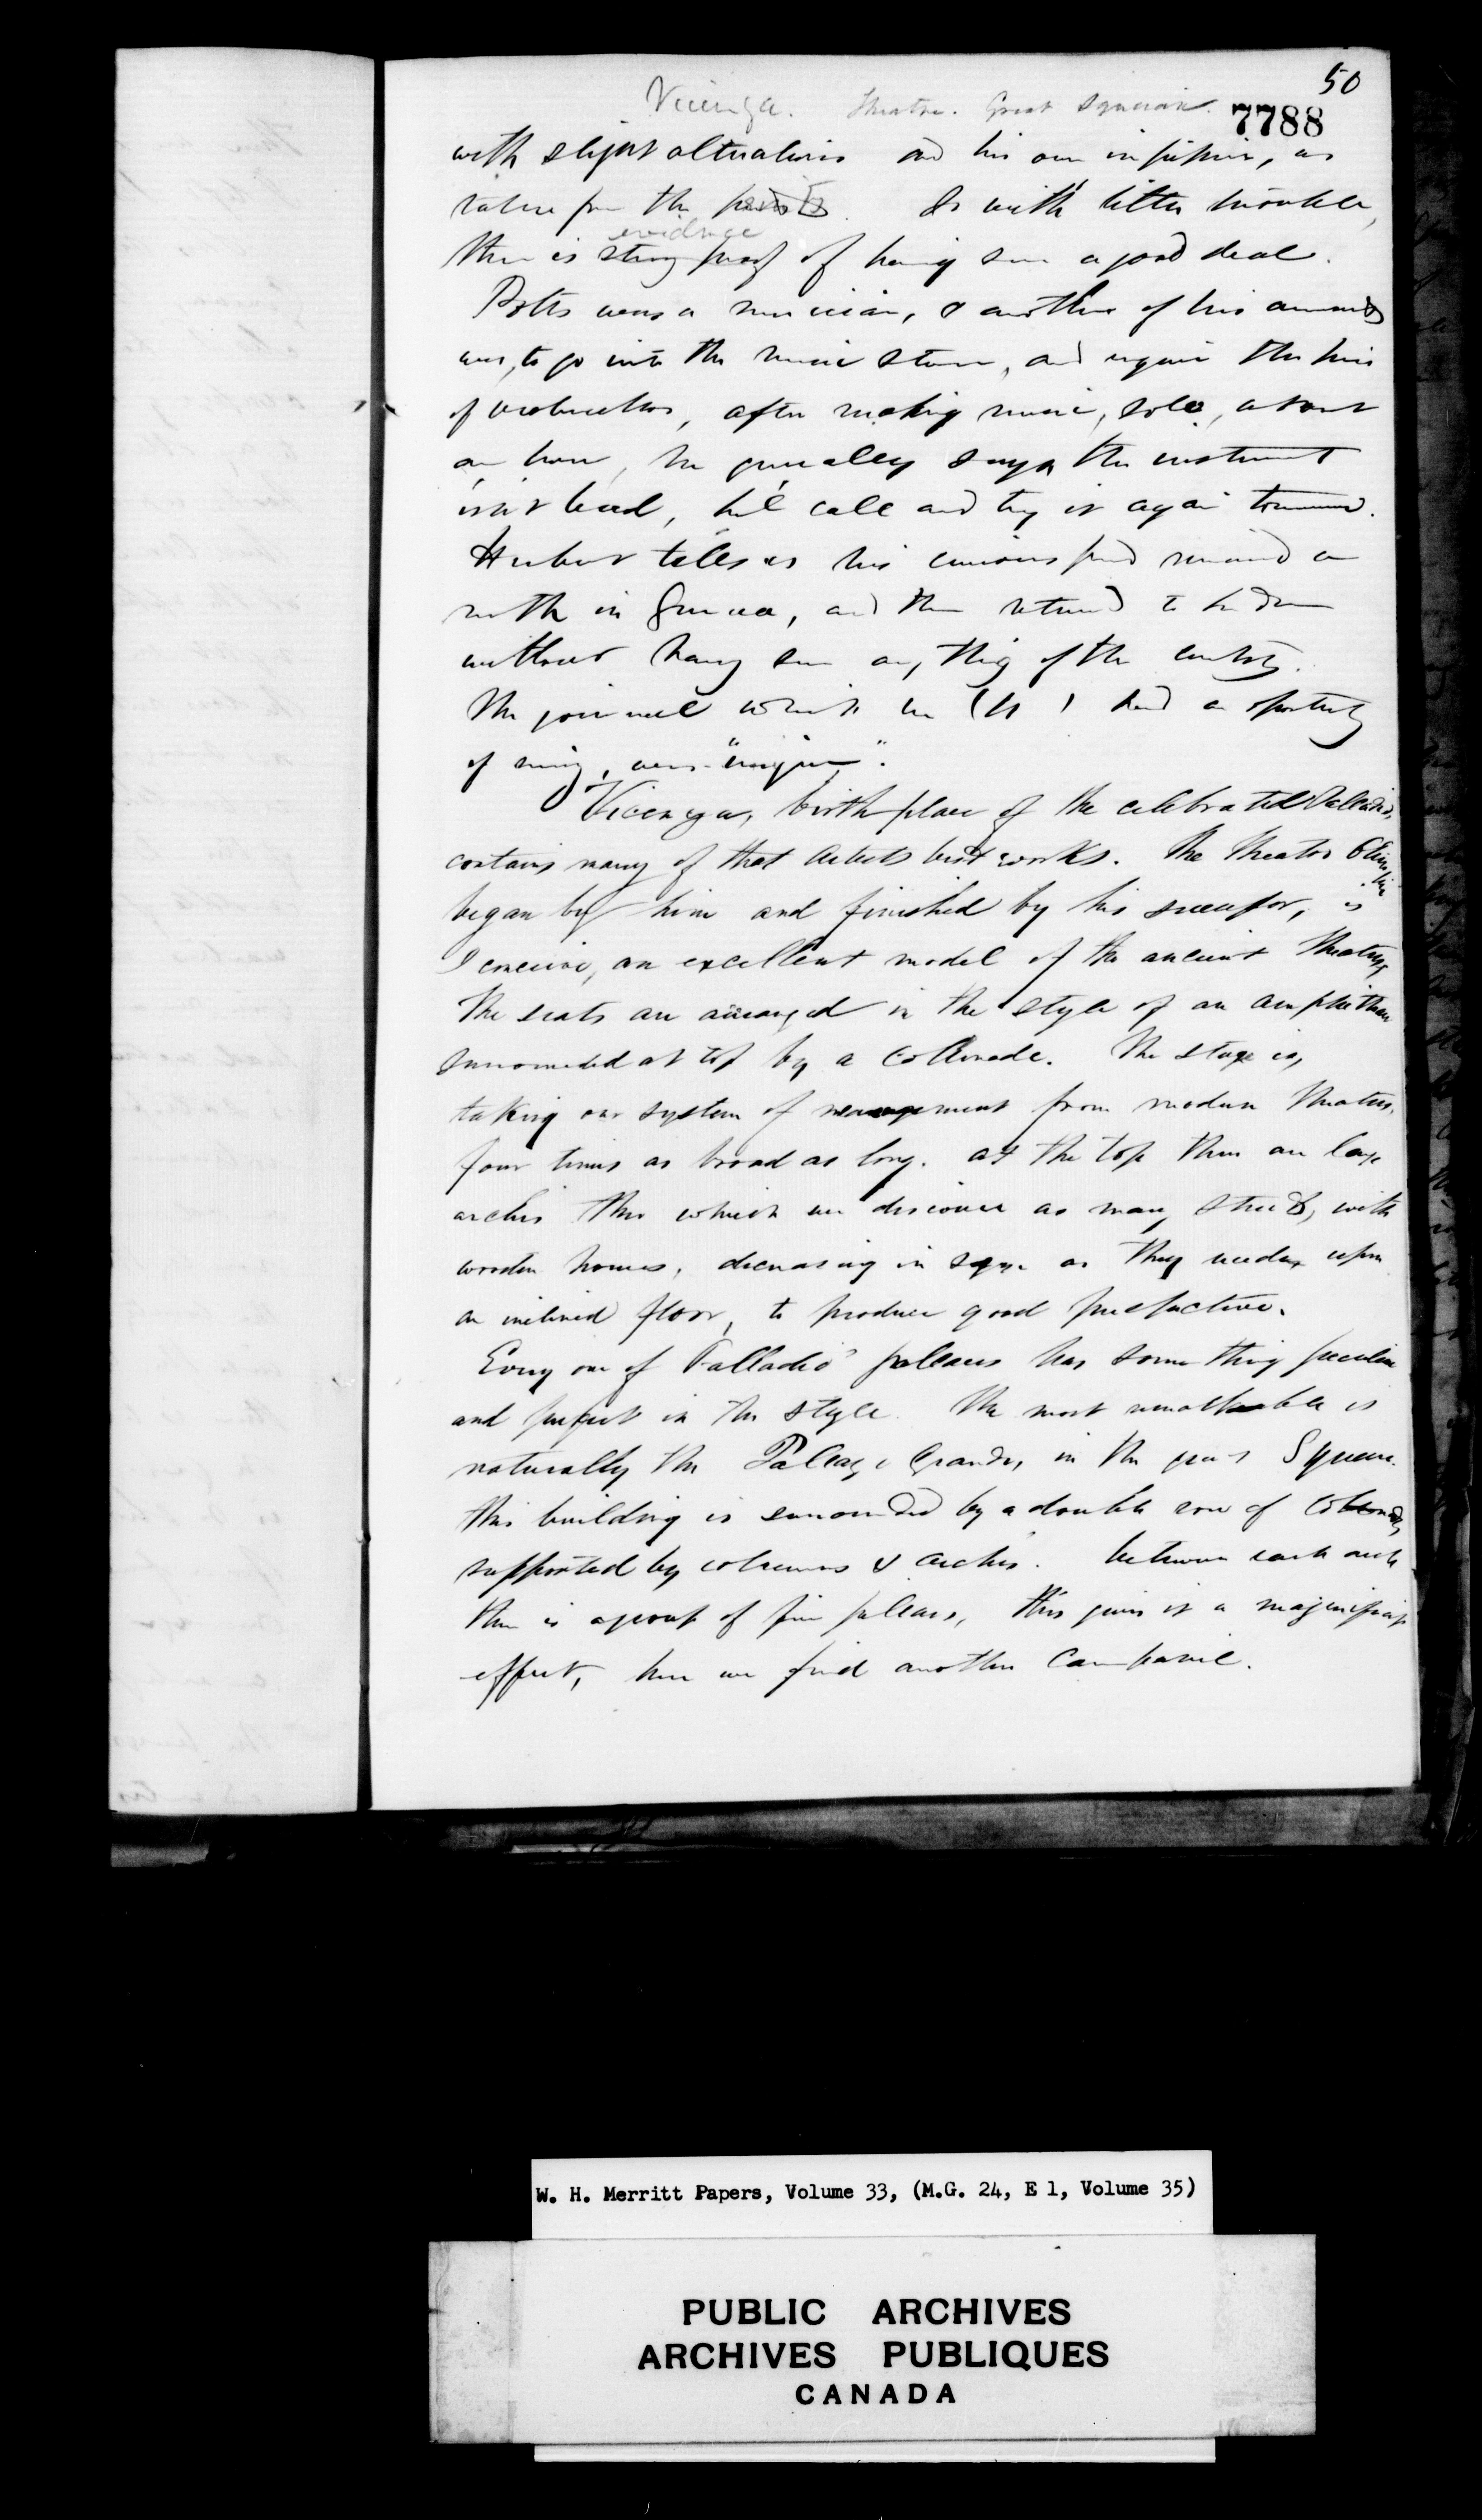 50
Vicenza. Theatre. Great Square.
7788
with slight alterations and his own, as
taken from the So with little trouble,
evidence
there is strong proof of having seen a good deal.
Potts was a musician, & another of his
was, to go into the music store, and the
of, after making music, solo, about
an hour, he generally says the instrument
isn't bad, he'll call and try it again tomorrow.
Hubert tells us his curious friend remained a
month in, and then returned to London
without having seen anything of the country.
The journal which he (H) had an opportunity
of seeing, was "unique".
Vicenza, birth place of the celebrated Palladio,
contains many of that Artists best works. The Theatro Olimpico
began by him and finished by his successor, is
I conceive, an excellent model of the ancient Theatres,
The seats are arranged in the style of an amphitheatre
surrounded at top by a Collonade. The stage is,
taking our system of from modern theatres,
four times as broad as long. at the top there are large
arches thro which we discover as many streets, with
wooden houses, decreasing in size as they recede, upon
an inclined floor, to produce good perspective.
Every one of Palladio' palaces has some thing peculiar
and perfect in the style. The most remarkable is
naturally the Palazzo Grande, in the great Square.
this building is surrounded by a double row of
supported by columns & arches. between each arch
there is a group of pillars, this gives it a magnificent
effect, here we find another Campanile.
W. H. Merritt Papers, Volume 33, (M.G. 24, E 1, Volume 35)
PUBLIC ARCHIVES
ARCHIVES PUBLIQUES
CANADA